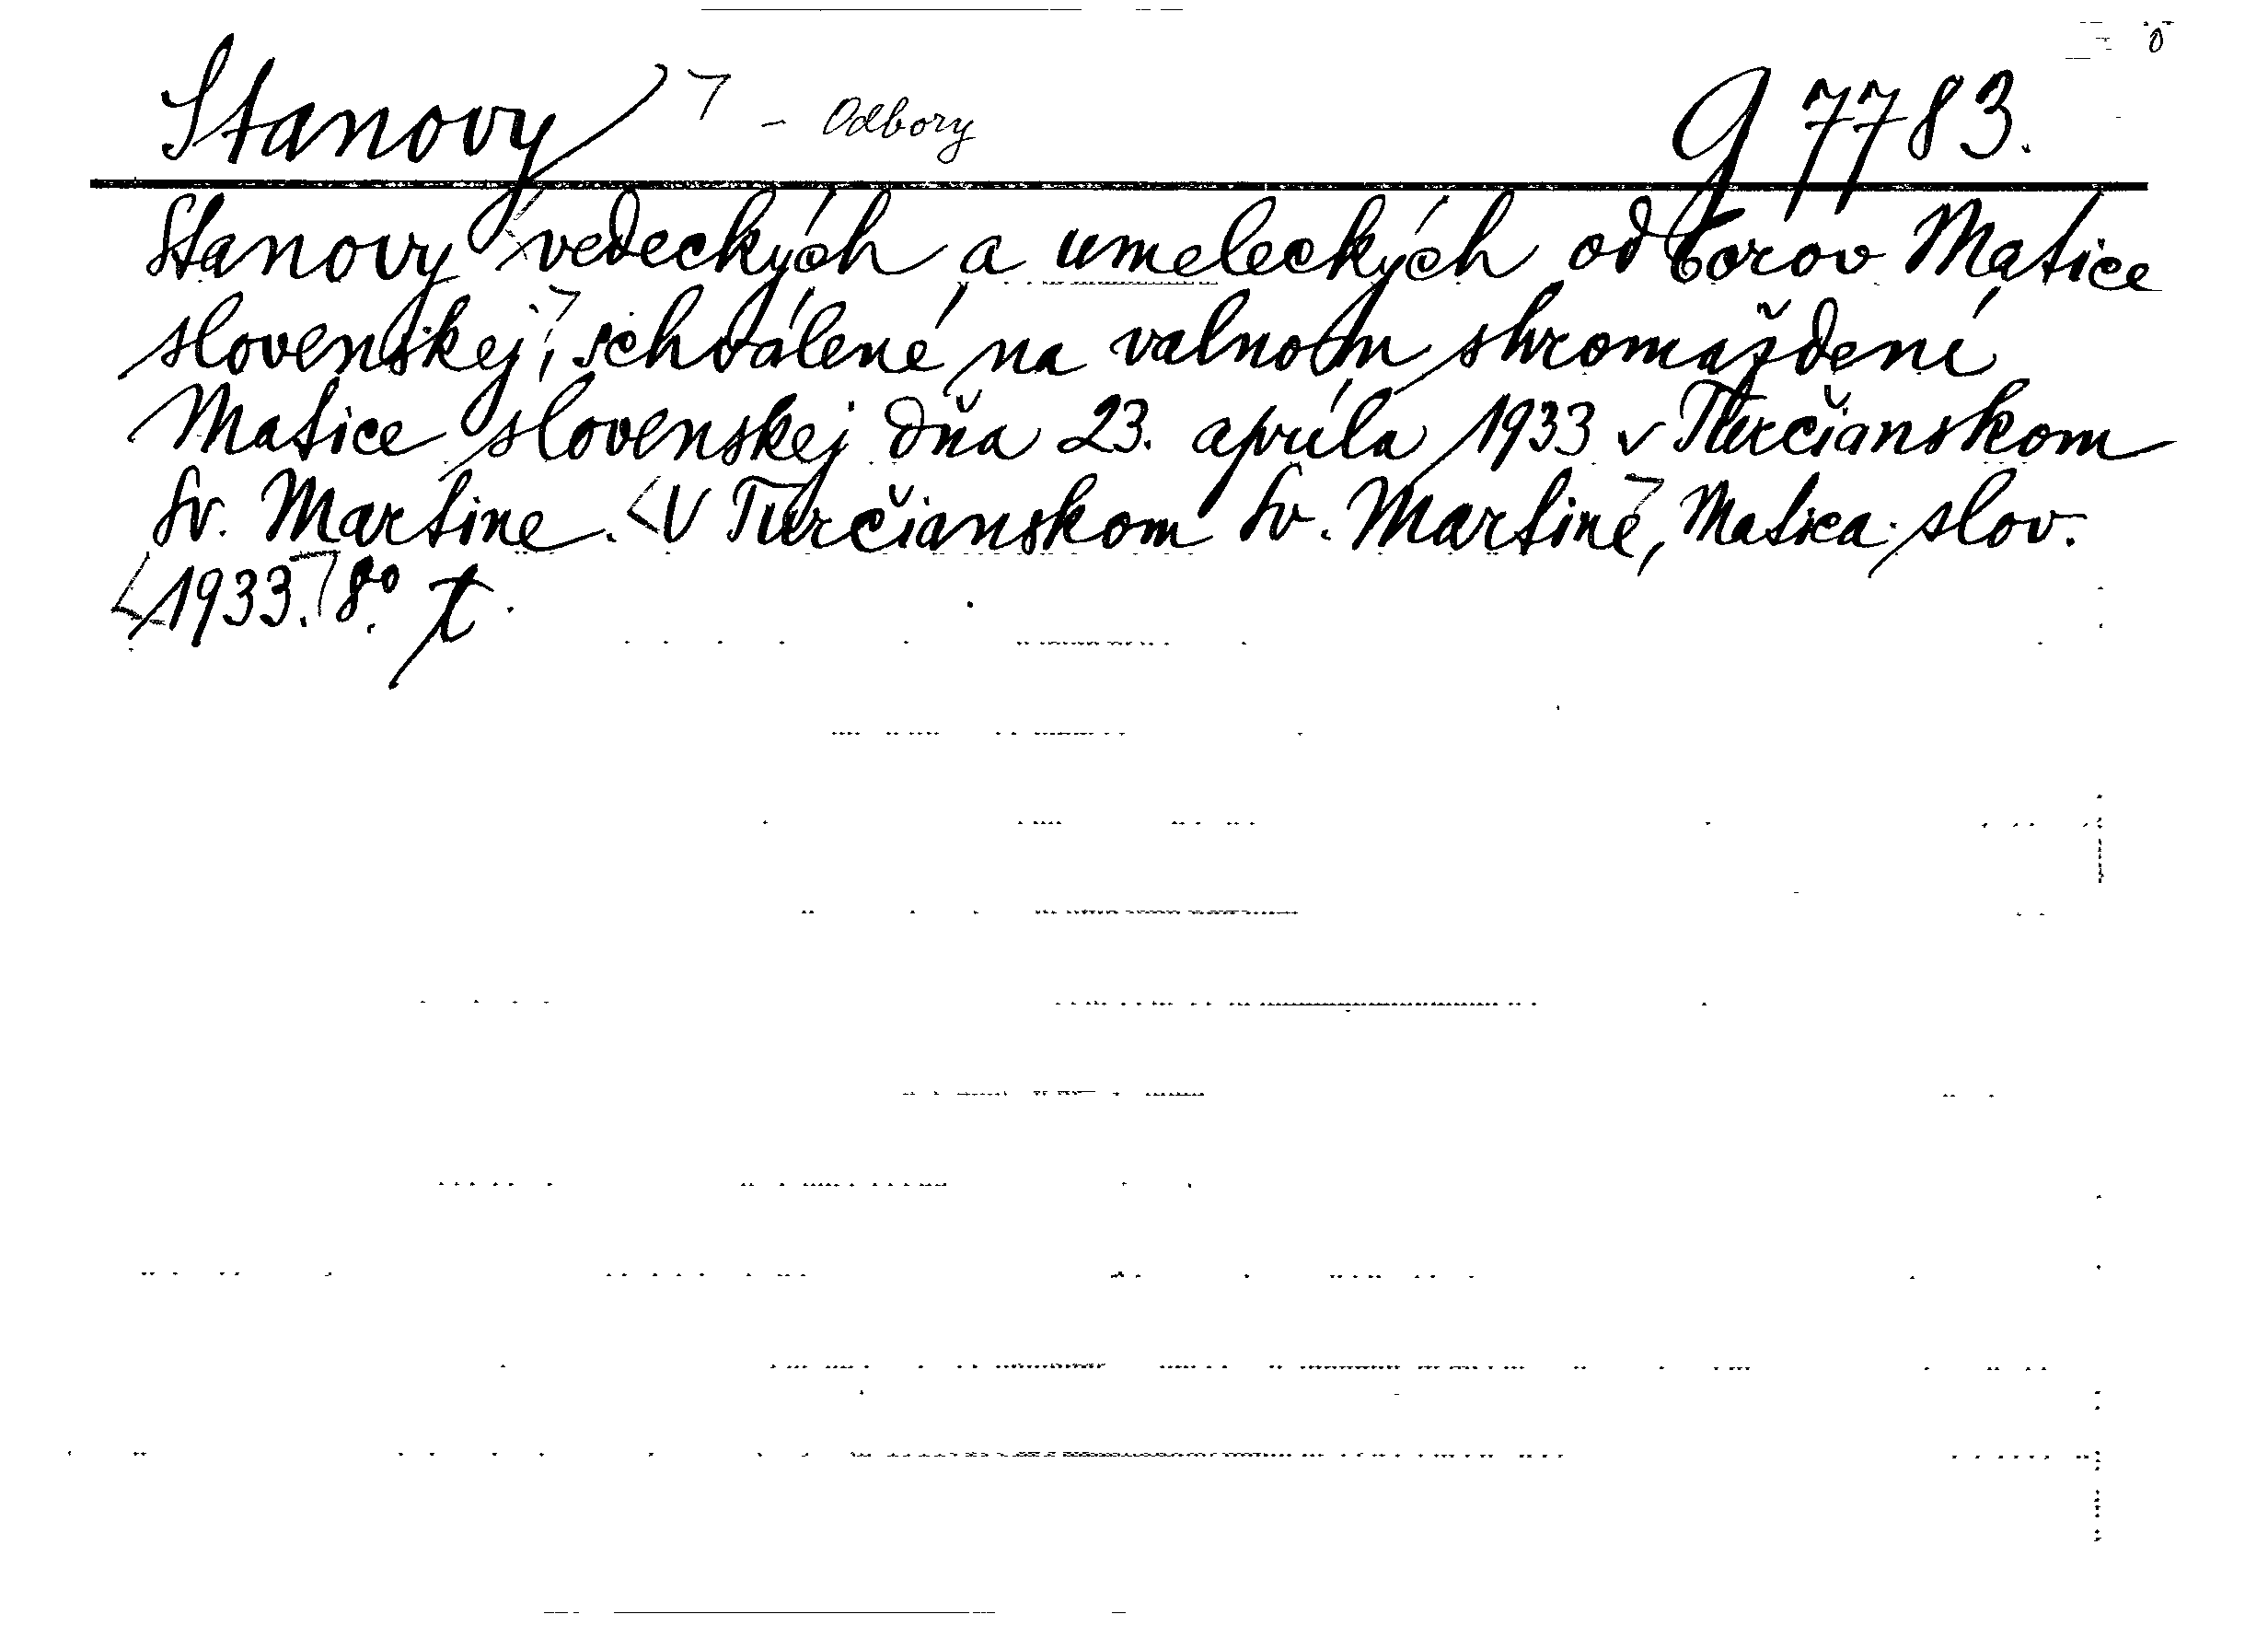 Stanovy - Odbory G 7783.
Stanovy vedeckých a umeleckých odborov Matice
slovenskej, schválené na valnom shromaždení
Matice slovenskej dňa 23. apríla 1933 v Turčianskom
Sv. Martine. V Turčianskom Sv. Martine, Matica slov.
1933. 8°.